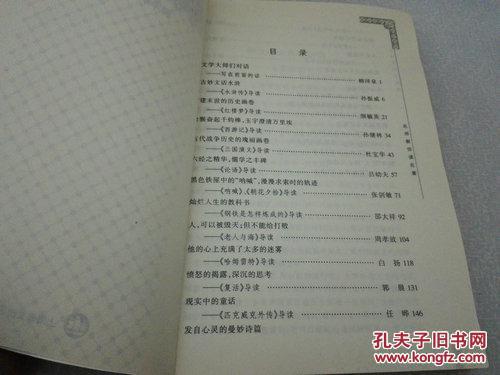 目 录
文学大师们对话
——写在前面的话 1
古妙文话水浒
——《水浒传》导读 孙振威 6
建末世的历史画卷
——《红楼梦》导读 21
猴奋起千钧棒,玉宇澄清万里埃
——《西游记》导读 34
古代战争历史的瑰丽画卷
——《三国演义》导读 杜宝华 43
六经之精华,儒学之丰碑
——《论语》导读 吕幼夫 57
黑色铁屋中的“呐喊”,漫漫求索时的轨迹
——《呐喊》、《朝花夕拾》导读 张训敏 71
灿烂人生的教科书
——《钢铁是怎样炼成的》导读 邵大祥 92
人,可以被毁灭;但不能给打败
——《老人与海》导读 周孝放 104
他的心上充满了太多的迷雾
——《哈姆雷特》导读 白 扬 118
愤怒的揭露,深沉的思考
——《复活》导读 郭 晨 131
现实中的童话
——《匹克威克外传》导读 任 晔 146
发自心灵的曼妙诗篇
孔夫子旧书网
www.kongfz.com